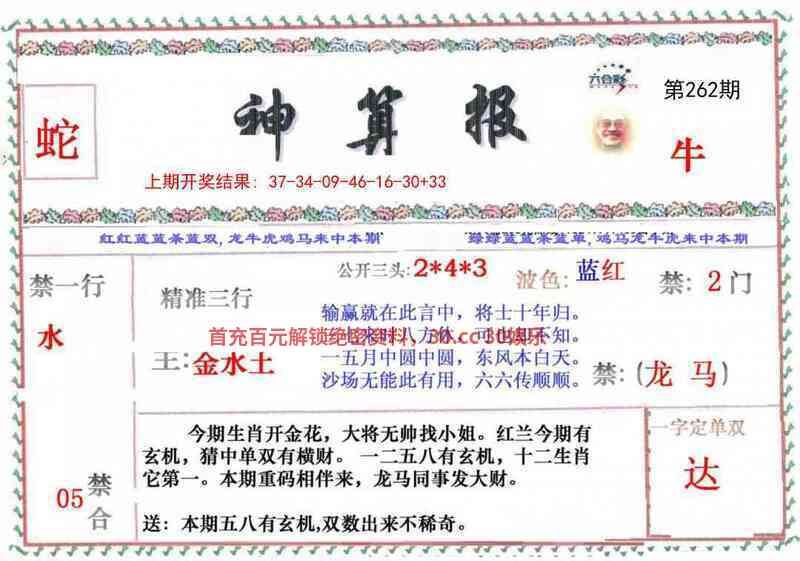 六合彩
第262期
神算报
蛇
牛
上期开奖结果：37-34-09-46-16-30+33
红红蓝蓝条蓝双,龙牛虎鸡马来中本期
绿绿蓝蓝条蓝单,鸡马龙牛虎来中本期
公开三头:2*4*3
波色:蓝红
禁:2门
禁一行
水
精准三行
王:金水土
输赢就在此言中，将士十年归。
首充百元解锁绝密资料，30.cc 30娱乐
一五月中圆中圆，东风本白天。
沙场无能此有用，六六传顺顺。
禁:(龙马)
今期生肖开金花，大将无帅找小姐。红兰今期有
玄机，猜中单双有横财。一二五八有玄机，十二生肖
它第一。本期重码相伴来，龙马同事发大财。
送：本期五八有玄机,双数出来不稀奇。
05禁合
一字定单双
达